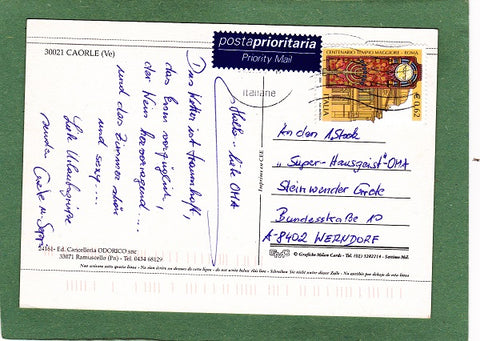 30021 CAORLE (Ve)
postaprioritaria
Priority Mail
CENTENARIO TEMPIO MAGGIORE - ROMA
ITALIA
€ 0,62
italiane
Hallo - liebe OMA
Das Wetter ist traumhaft,
das Essen vorzüglich,
der Wein hervorragend...
und das Zimmer schön
und sexy....
Liebe Urlaubsgrüsse
An den 1. Stock
"Super-Hausgeist"-OMA
Steinwender Grete
Bundesstraße 10
A-8402 WERNDORF
Imprimerie CEE
Ed. Cancelleria ODORICO snc
33071 Ramuscello (Pn) - Tel. 0434 68129
© Grafiche Milan Cards - Tel. (02) 3282214 - Settimo Mil.
Non scrivere sotto questa linea - Ne rien écrire au dessous de cette ligne - do not write below this line - Schreiben Sie nicht unter dieser Zeile - No escribir por debajo de esta linea